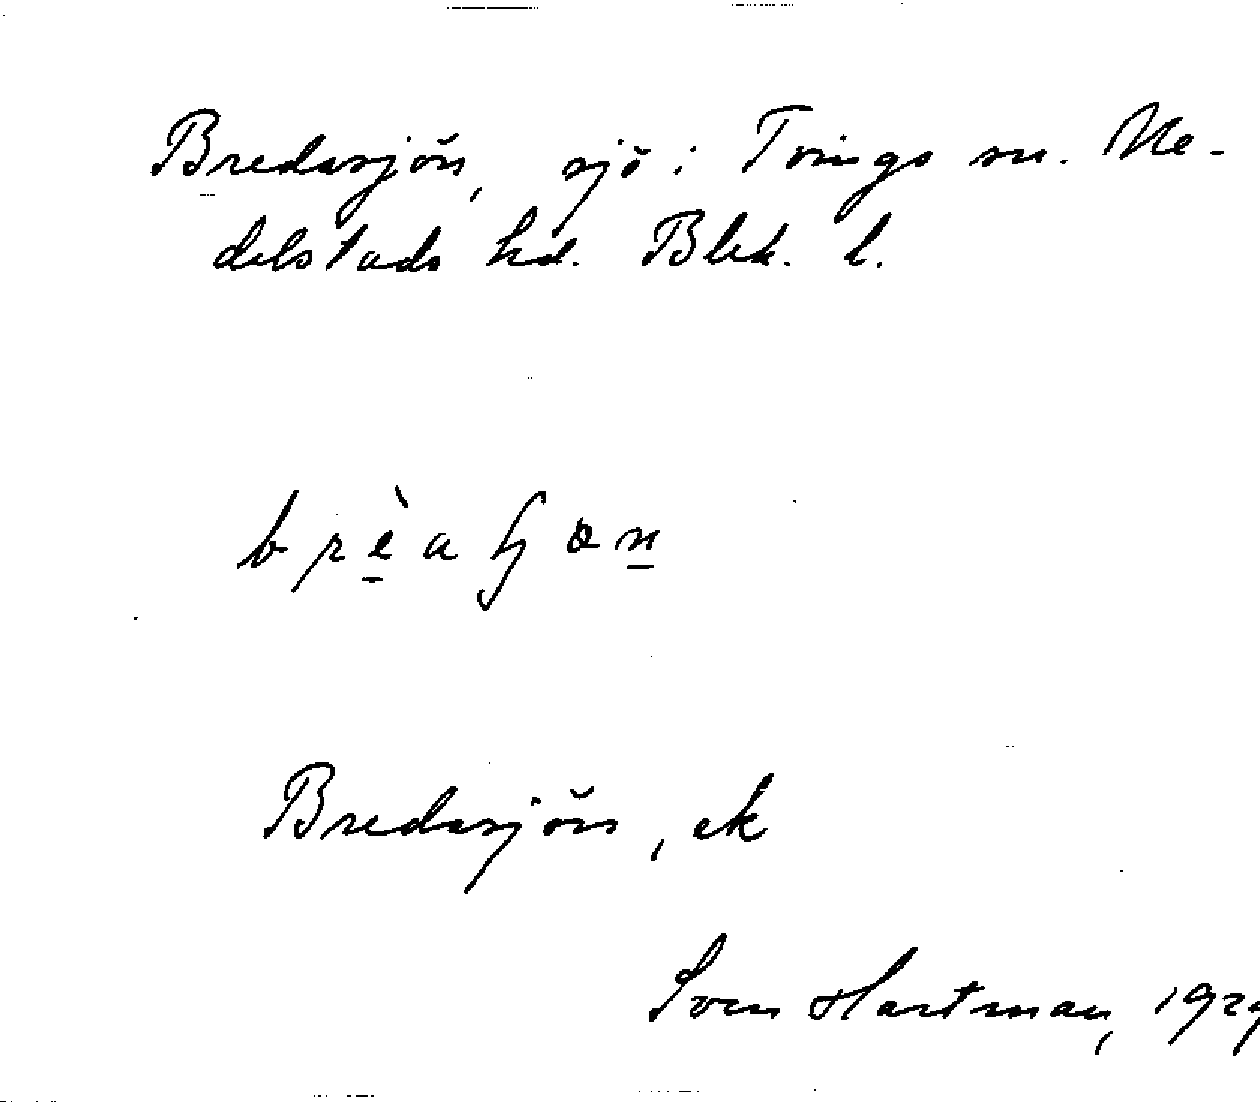 Bredasjön, sjö i Tvings sn. Me-
delstads hd. Blek. l.
Bredasjön, ek
Sven Hartman, 1929